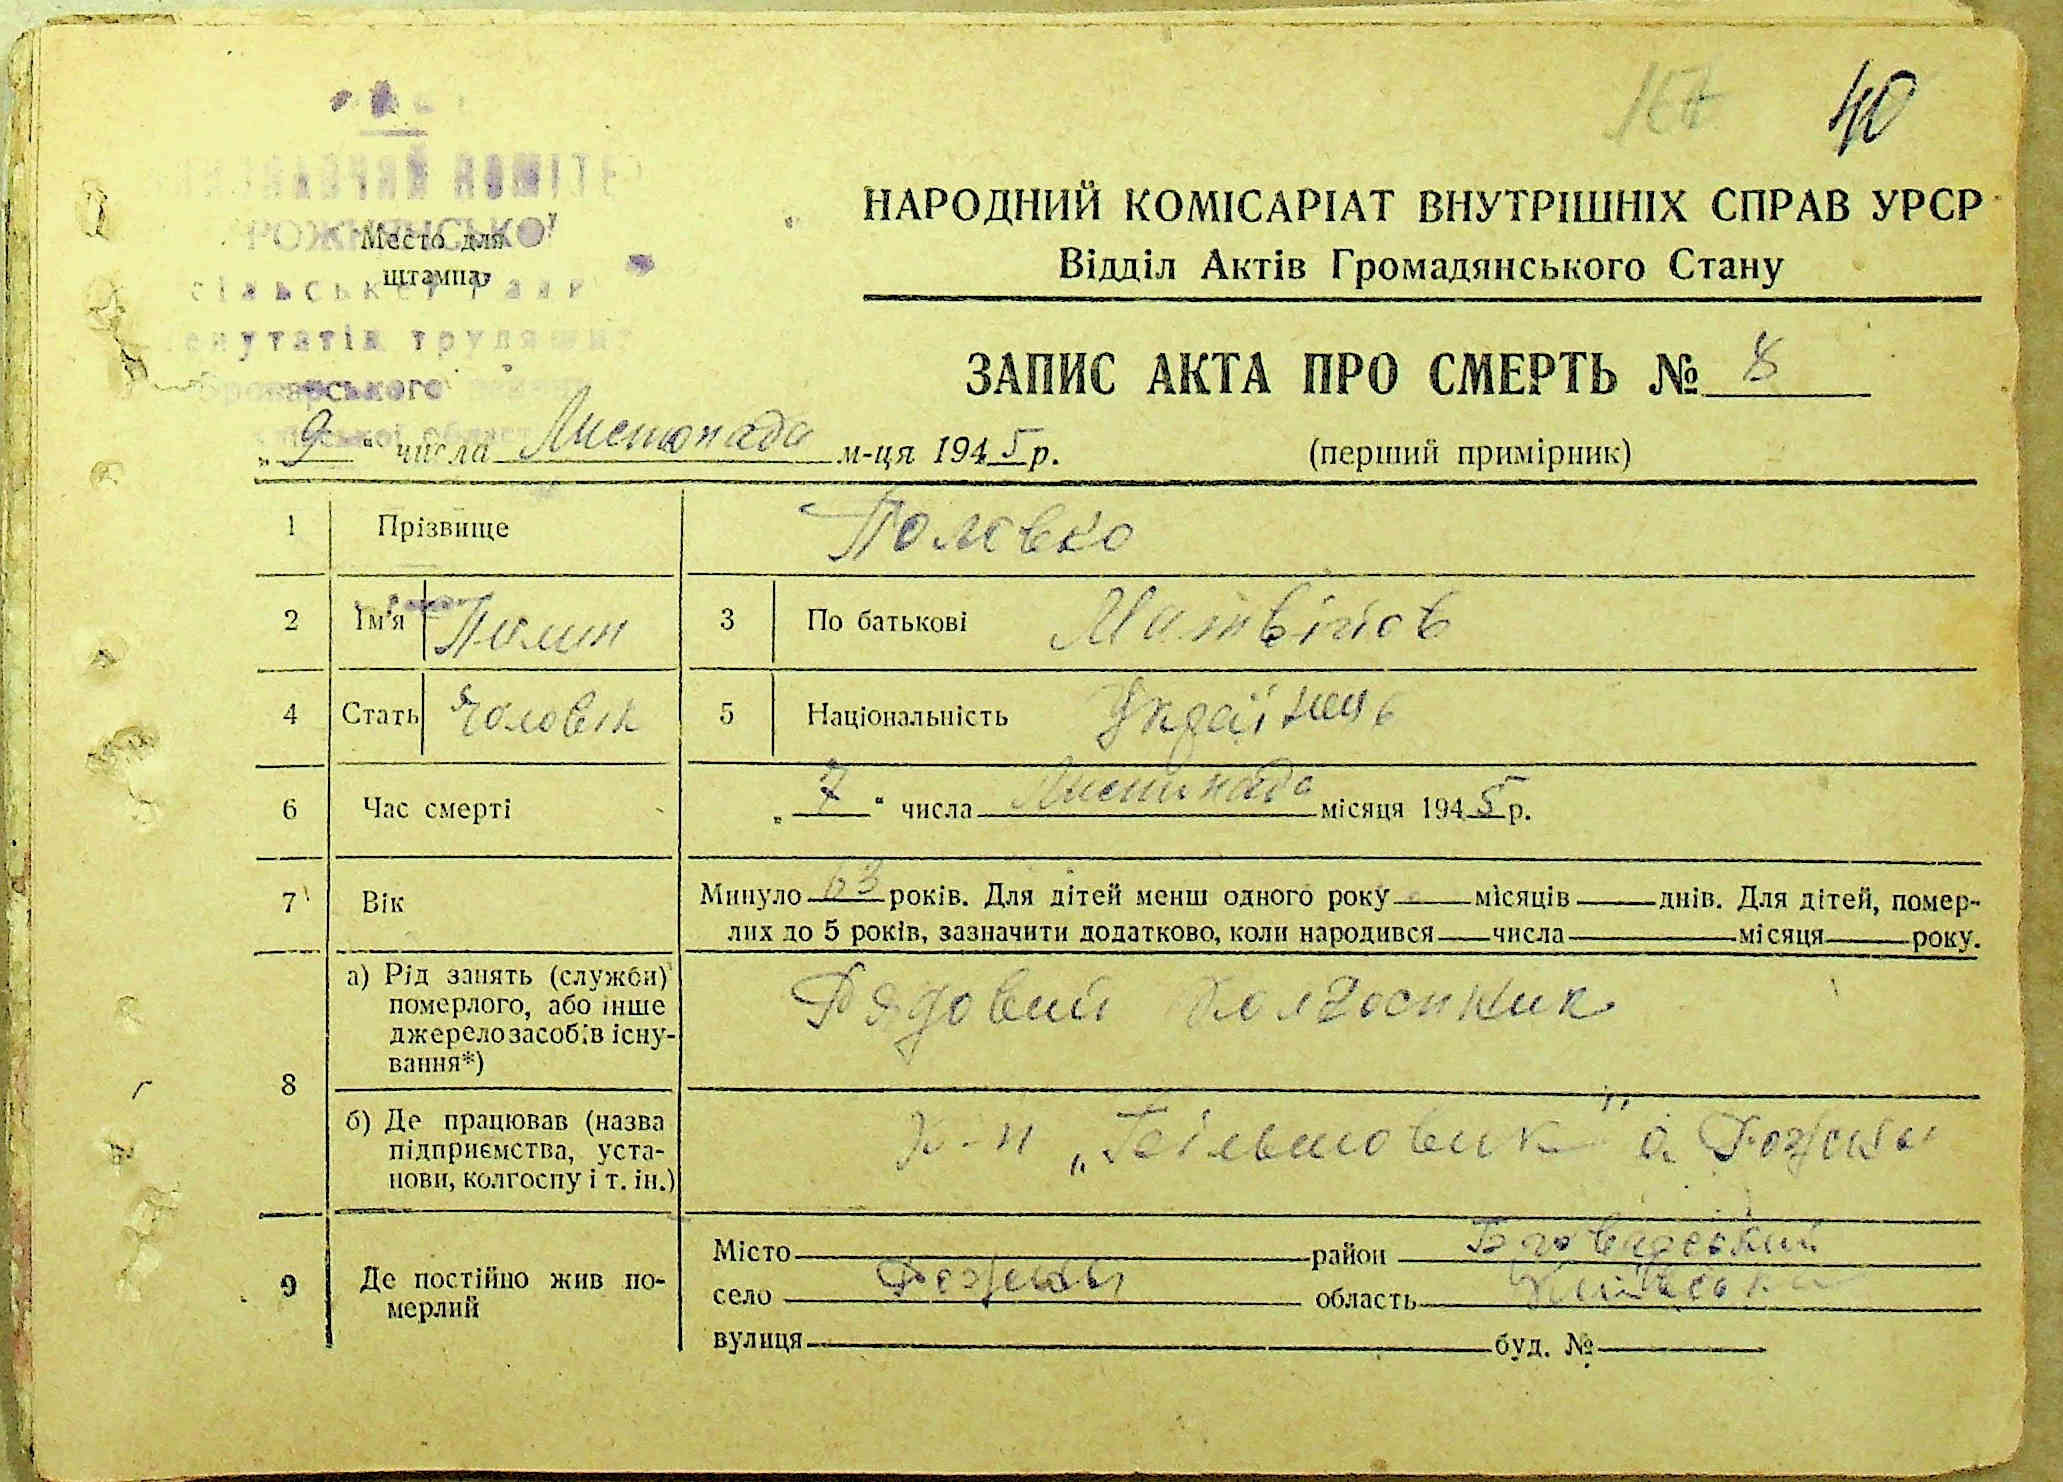 40
НАРОДНИЙ КОМІСАРІАТ ВНУТРІШНІХ СПРАВ УРСР
Відділ Актів Громадянського Стану
РОЖНІВСЬКОЇ
Место для
штампа
сільської Ради
депутатів трудящих
Броварського
ЗАПИС АКТА ПРО СМЕРТЬ № 8
„9“ числа Листопада м-ця 1945 р.
(перший примірник)
1 Прізвище Половко
2 Ім'я 3 По батькові Матвійов
4 Стать Чоловік 5 Національність Українець
6 Час смерті „7“ числа Листопада місяця 1945 р.
7 Вік Минуло 63 років. Для дітей менш одного року місяців днів. Для дітей, помер-
лих до 5 років, зазначити додатково, коли народився числа місяця року.
8 а) Рід занять (служби) Рядовий Колгоспник
померлого, або інше
джерело засобів існу-
вання*)
б) Де працював (назва К-п „Більшовик" с. Рожни
підприємства, уста-
нови, колгоспу і т. ін.)
9 Де постійно жив по-
мерлий
Місто район Броварський
село Рожни область Київська
вулиця буд. №